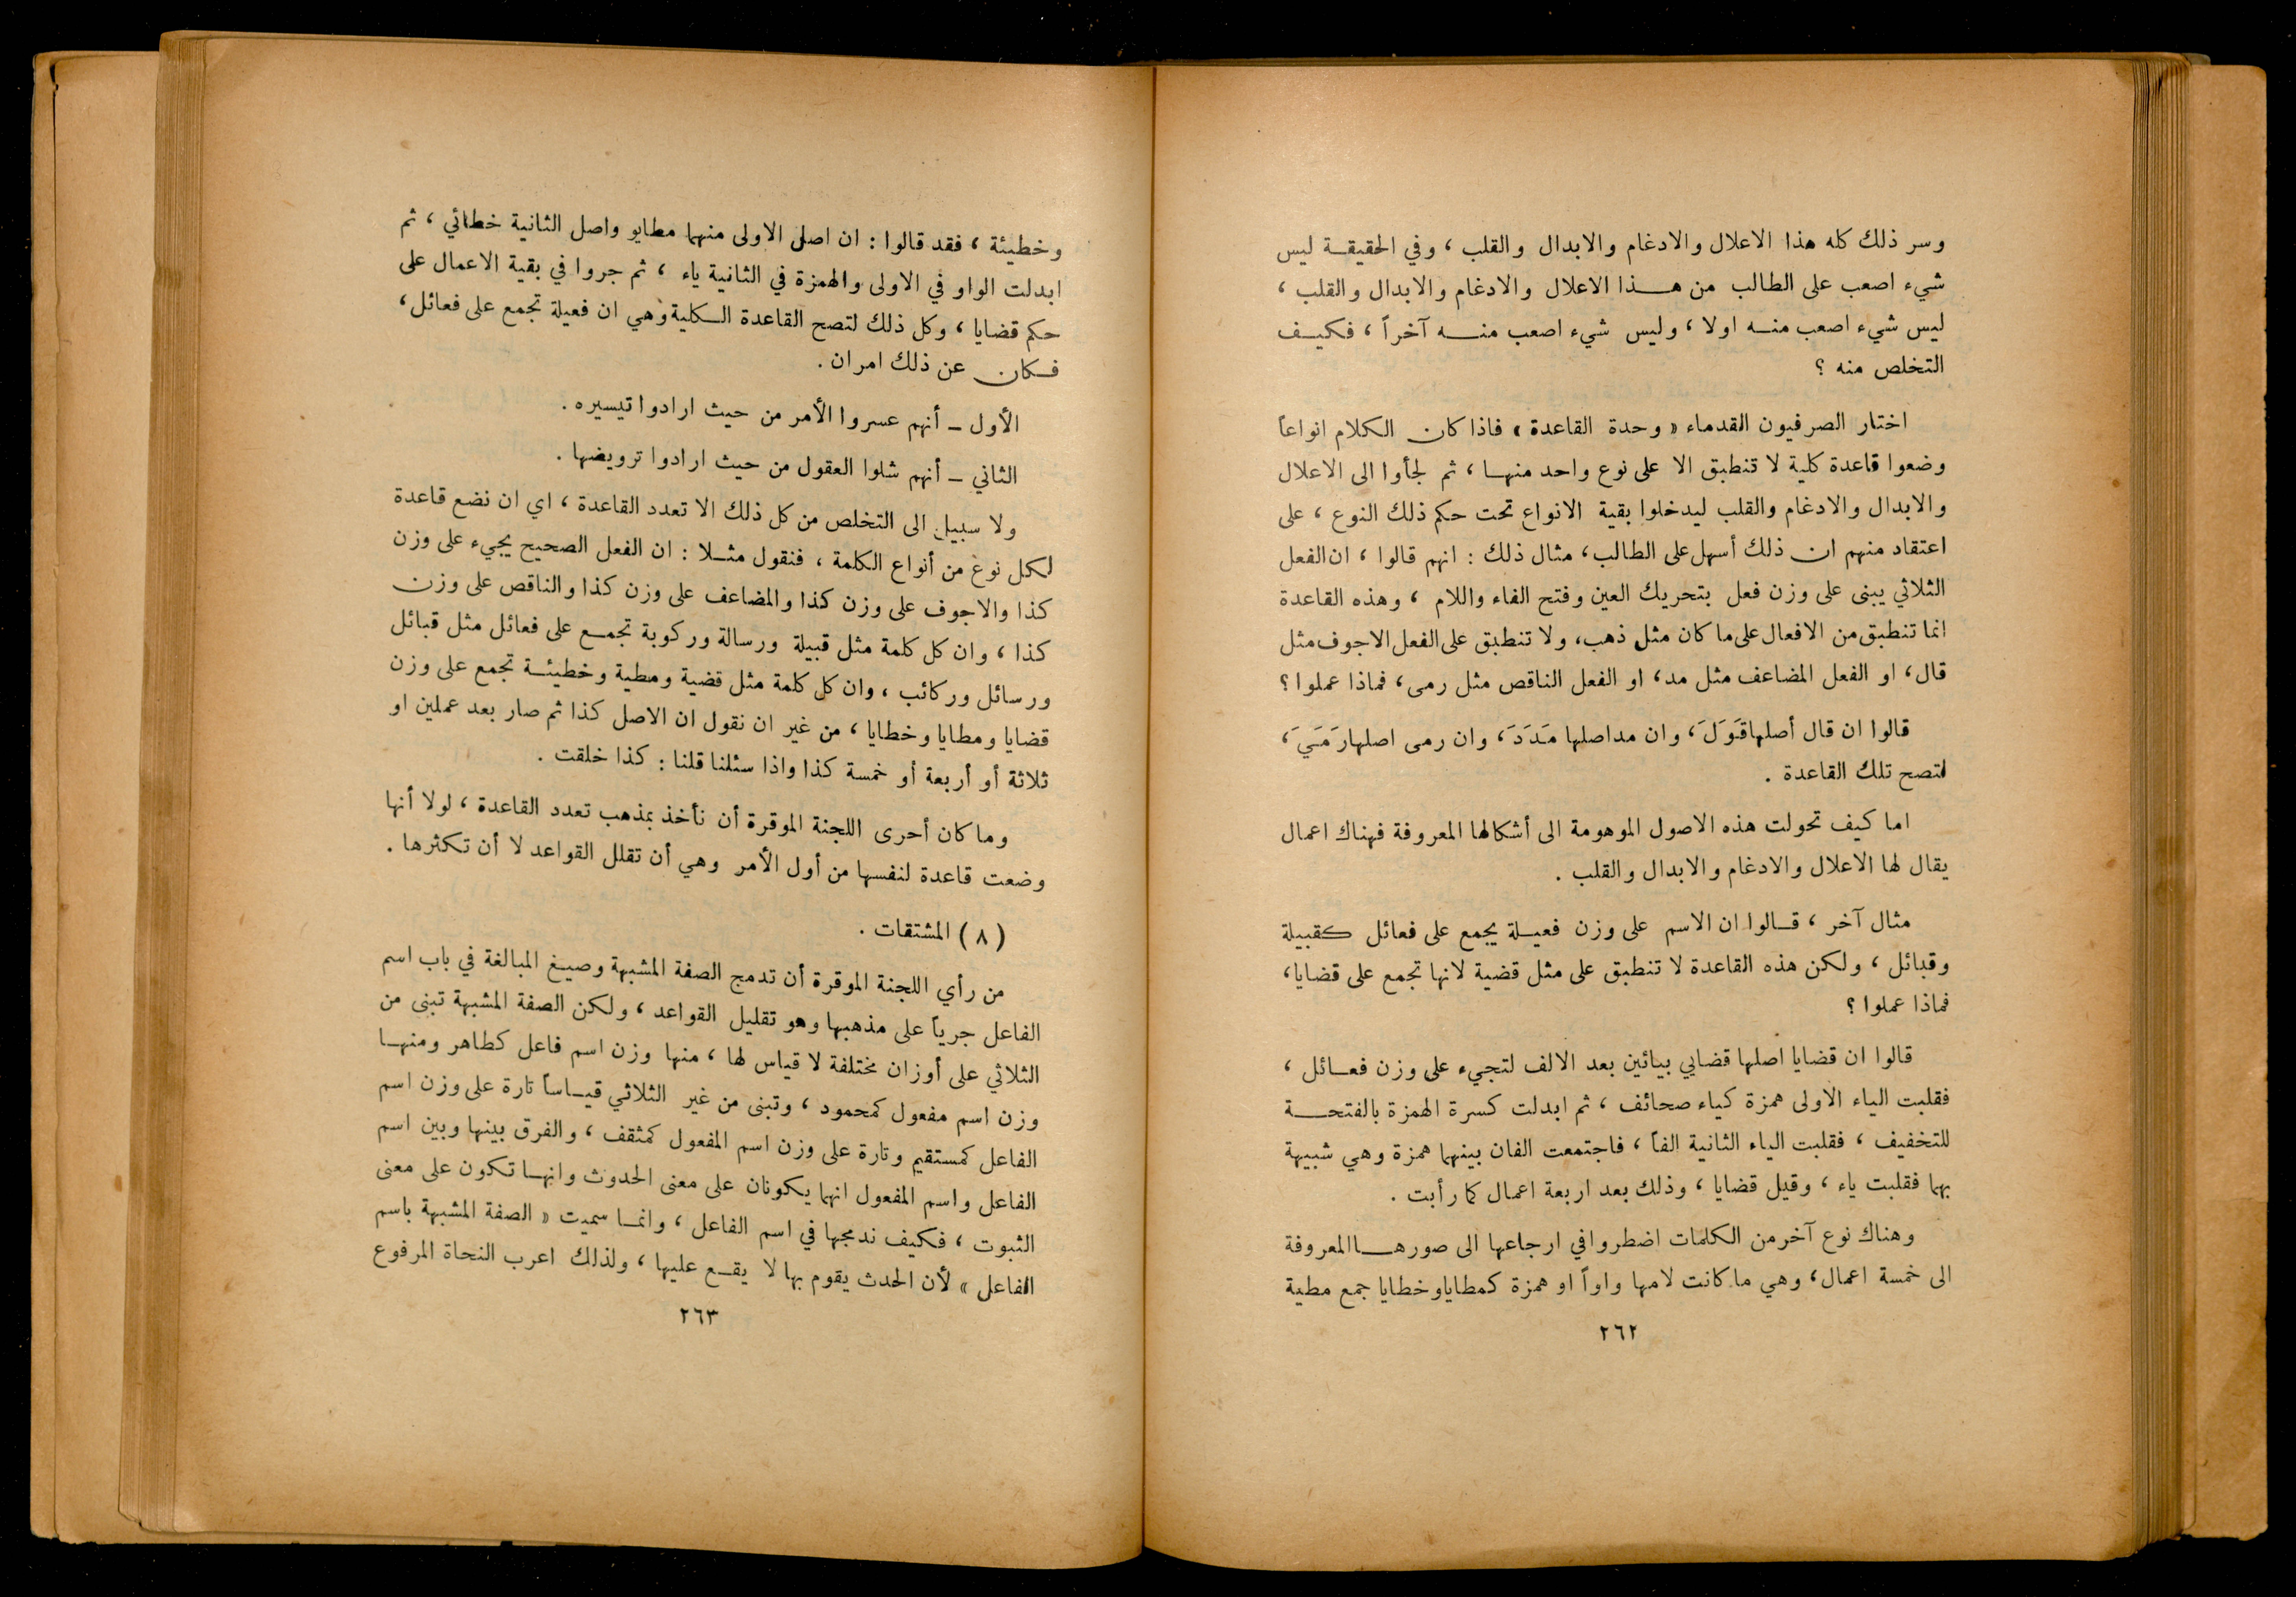 وسر ذلك كله هذا الاعلال والادغام والابدال والقلب ، وفي الحقيقة ليس
شيء اصعب على الطالب من هذا الاعلال والادغام والابدال والقلب ،
ليس شيء اصعب منه اولا ، وليس شيء اصعب منه آخراً ، فكيف
التخلص منه ؟
اختار الصرفيون القدماء « وحدة القاعدة » فاذا كان الكلام انواعاً
وضعوا قاعدة كلية لا تنطبق الا على نوع واحد منها ، ثم لجأوا الى الاعلال
والابدال والادغام والقلب ليدخلوا بقية الانواع تحت حكم ذلك النوع ، على
اعتقاد منهم ان ذلك أسهل على الطالب ، مثال ذلك : انهم قالوا ، ان الفعل
الثلاثي يبنى على وزن فعل بتحريك العين وفتح الفاء واللام ، وهذه القاعدة
انما تنطبق من الافعال على ما كان مثل ذهب ، ولا تنطبق على الفعل الاجوف مثل
قال ، او الفعل المضاعف مثل مد ، او الفعل الناقص مثل رمى ، فماذا عملوا ؟
قالوا ان قال أصلها قَوَلَ ، وان مد اصلها مَدَدَ ، وان رمى اصلها رَمَيَ ،
لتصح تلك القاعدة .
اما كيف تحولت هذه الاصول الموهومة الى أشكالها المعروفة فهناك اعمال
يقال لها الاعلال والادغام والابدال والقلب .
مثال آخر ، قالوا ان الاسم على وزن فعيلة يجمع على فعائل كقبيلة
وقبائل ، ولكن هذه القاعدة لا تنطبق على مثل قضية لانها تجمع على قضايا ،
فماذا عملوا ؟
قالوا ان قضايا اصلها قضايي بيائين بعد الالف لتجيء على وزن فعائل ،
فقلبت الياء الاولى همزة كياء صحائف ، ثم ابدلت كسرة الهمزة بالفتحة
للتخفيف ، فقلبت الياء الثانية الفاً ، فاجتمعت الفان بينهما همزة وهي شبيهة
بهما فقلبت ياء ، وقيل قضايا ، وذلك بعد اربعة اعمال كما رأيت .
وهناك نوع آخر من الكلمات اضطروا في ارجاعها الى صورها المعروفة
الى خمسة اعمال ، وهي ما كانت لامها واواً او همزة كمطايا وخطايا جمع مطية
٢٦٢
وخطيئة ، فقد قالوا : ان اصل الاولى منهما مطايو واصل الثانية خطائي ، ثم
ابدلت الواو في الاولى والهمزة في الثانية ياء ، ثم جروا في بقية الاعمال على
حكم قضايا ، وكل ذلك لتصح القاعدة الكلية وهي ان فعيلة تجمع على فعائل ،
فكان عن ذلك امران .
الأول – أنهم عسروا الأمر من حيث ارادوا تيسيره .
الثاني – أنهم شلوا العقول من حيث ارادوا ترويضها .
ولا سبيل الى التخلص من كل ذلك الا تعدد القاعدة ، اي ان نضع قاعدة
لكل نوع من أنواع الكلمة ، فنقول مثلا : ان الفعل الصحيح يجيء على وزن
كذا والاجوف على وزن كذا والمضاعف على وزن كذا والناقص على وزن
كذا ، وان كل كلمة مثل قبيلة ورسالة وركوبة تجمع على فعائل مثل قبائل
ورسائل وركائب ، وان كل كلمة مثل قضية ومطية وخطيئة تجمع على وزن
قضايا ومطايا وخطايا ، من غير ان نقول ان الاصل كذا ثم صار بعد عملين او
ثلاثة أو أربعة أو خمسة كذا واذا سئلنا قلنا : كذا خلقت .
وما كان أحرى اللجنة الموقرة أن نأخذ بمذهب تعدد القاعدة ، لولا أنها
وضعت قاعدة لنفسها من أول الأمر وهي أن تقلل القواعد لا أن تكثرها .
( ٨ ) المشتقات .
من رأي اللجنة الموقرة أن تدمج الصفة المشبهة وصيغ المبالغة في باب اسم
الفاعل جرياً على مذهبها وهو تقليل القواعد ، ولكن الصفة المشبهة تبنى من
الثلاثي على أوزان مختلفة لا قياس لها ، منها وزن اسم فاعل كطاهر ومنها
وزن اسم مفعول كمحمود ، وتبنى من غير الثلاثي قياساً تارة على وزن اسم
الفاعل كمستقيم وتارة على وزن اسم المفعول كمثقف ، والفرق بينها وبين اسم
الفاعل واسم المفعول انهما يكونان على معنى الحدوث وانها تكون على معنى
الثبوت ، فكيف ندمجها في اسم الفاعل ، وانما سميت « الصفة المشبهة باسم
الفاعل » لأن الحدث يقوم بها لا يقع عليها ، ولذلك اعرب النحاة المرفوع
٢٦٣